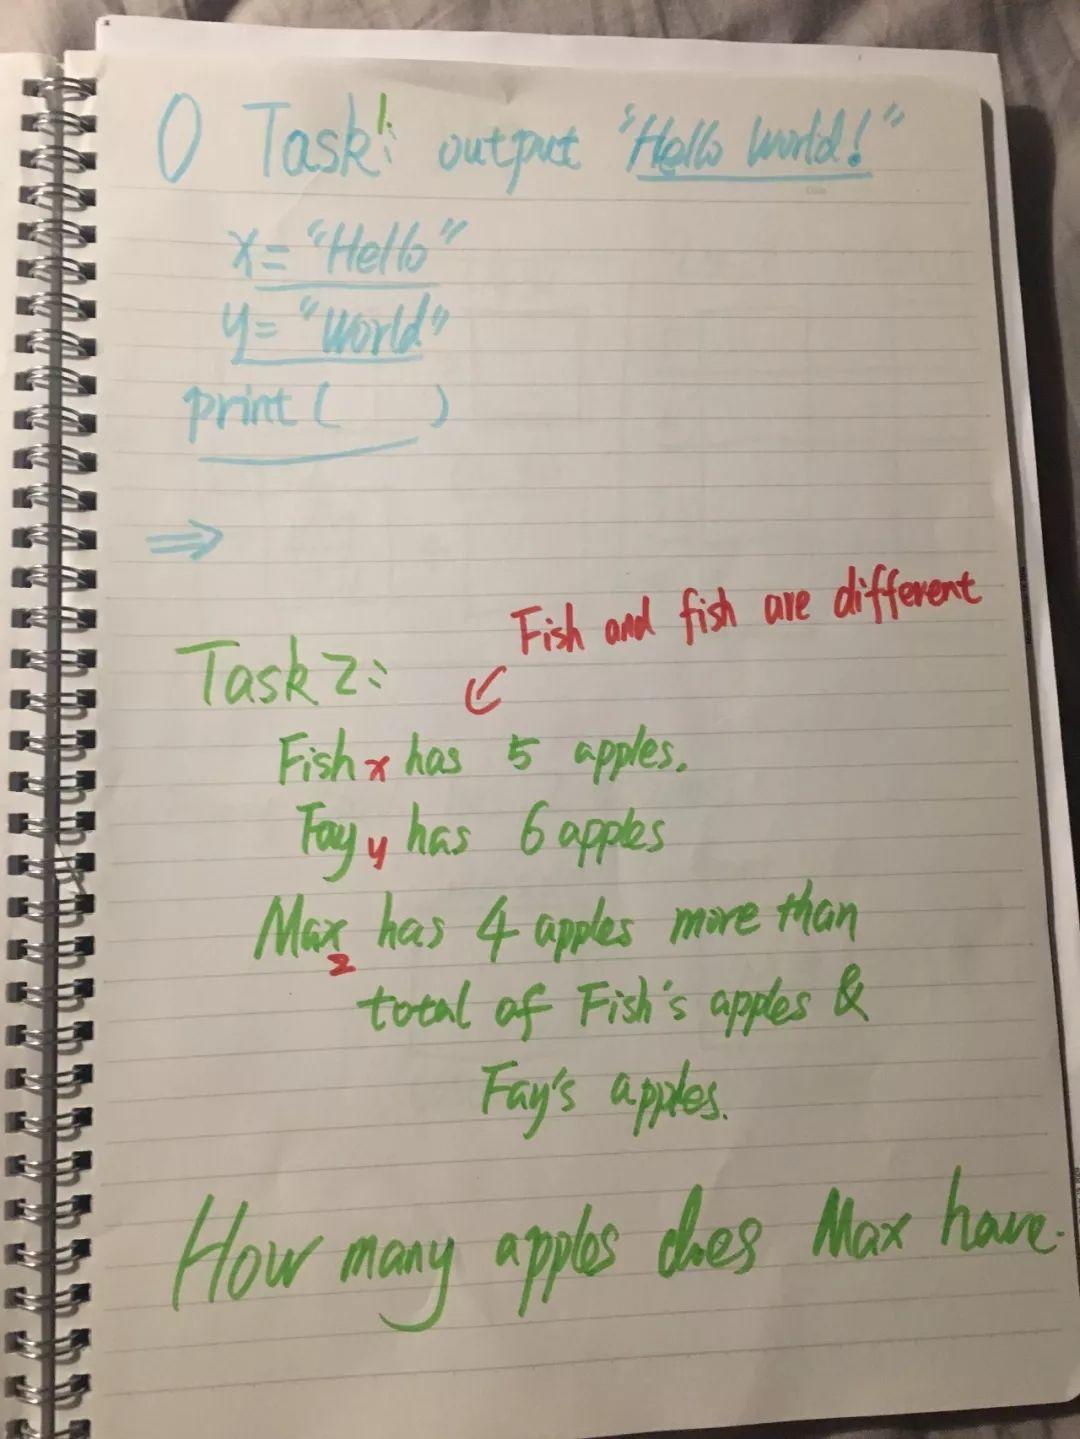 0 Task 1: output "Hello World!"
x= "Hello"
y= "World"
print ( )
⇒
Fish and fish are different
Task 2:
Fish x has 5 apples.
Fay y has 6 apples
Max z has 4 apples more than
total of Fish's apples &
Fay's apples.
How many apples does Max have.